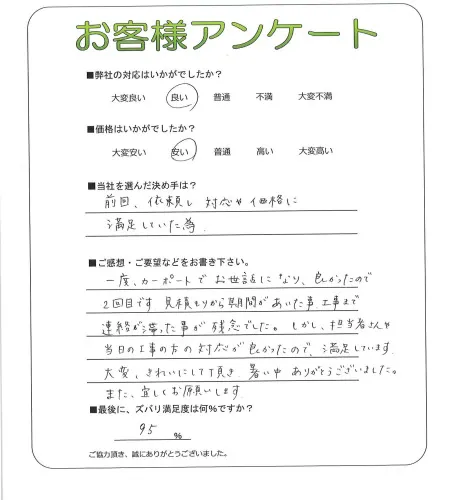 お客様アンケート
■弊社の対応はいかがでしたか？
大変良い 良い 普通 不満 大変不満
■価格はいかがでしたか？
大変安い 安い 普通 高い 大変高い
■当社を選んだ決め手は？
前回、依頼し 対応や価格に
満足していた為
■ご感想・ご要望などをお書き下さい。
一度、カーポートで お世話になり、良かったので
2回目です 見積もりから期間があいた事、工事まで
連絡が滞った事が 残念でした。しかし、担当者さんや
当日の工事の方の対応が良かったので、満足しています
大変、きれいにして頂き 暑い中 ありがとうございました。
また、宜しくお願いします
■最後に、ズバリ満足度は何％ですか？
95 ％
ご協力頂き、誠にありがとうございました。